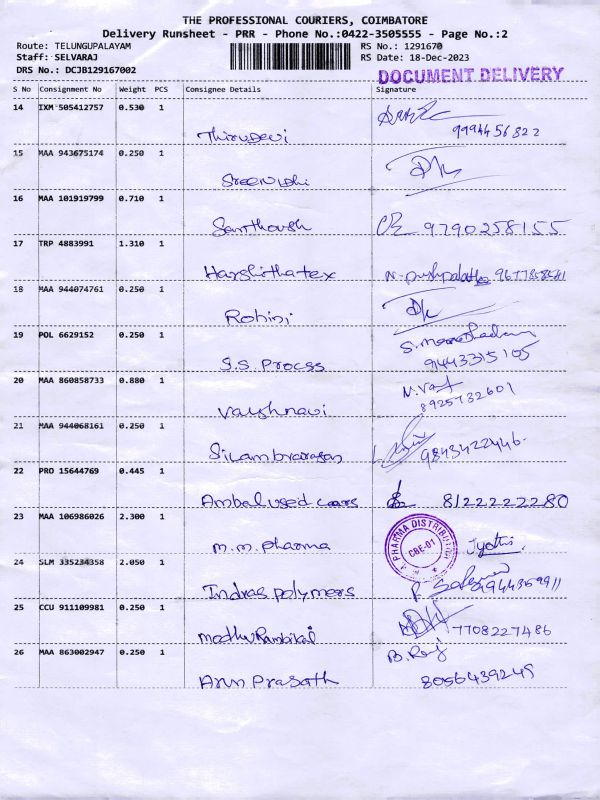 THE PROFESSIONAL COURIERS, COIMBATORE
Delivery Runsheet - PRR - Phone No.:0422-3505555 - Page No.:2
Route: TELUNGUPALAYAM RS No.: 1291670
Staff: SELVARAJ RS Date: 18-Dec-2023
DRS No.: DCJB129167002 DOCUMENT DELIVERY
S No Consignment No Weight PCS Consignee Details Signature
14 IXM 505412757 0.530 1
Thirudevi 9994456822
15 MAA 943675174 0.250 1
Sreenidhi
16 MAA 101919799 0.710 1
Santhoush 9790258155
17 TRP 4883991 1.310 1
Harshithatex N. pushpalatha
18 MAA 944074761 0.250 1
Rohini
19 POL 6629152 0.250 1
S.S. Process 9443315105
20 MAA 860858733 0.880 1
Vaishnavi 8925732601
21 MAA 944068161 0.250 1
Silambarasan 9843422446
22 PRO 15644769 0.445 1
Ambal used cars 8122222280
23 MAA 106986026 2.300 1
PHARMA DISTRIBUTOR
CBE-01
M.M. Pharma Jyothi
24 SLM 335234358 2.050 1
Indras polymers
25 CCU 911109981 0.250 1
7708227486
26 MAA 863002947 0.250 1 B. Raj
Arun Prasath 8056439249